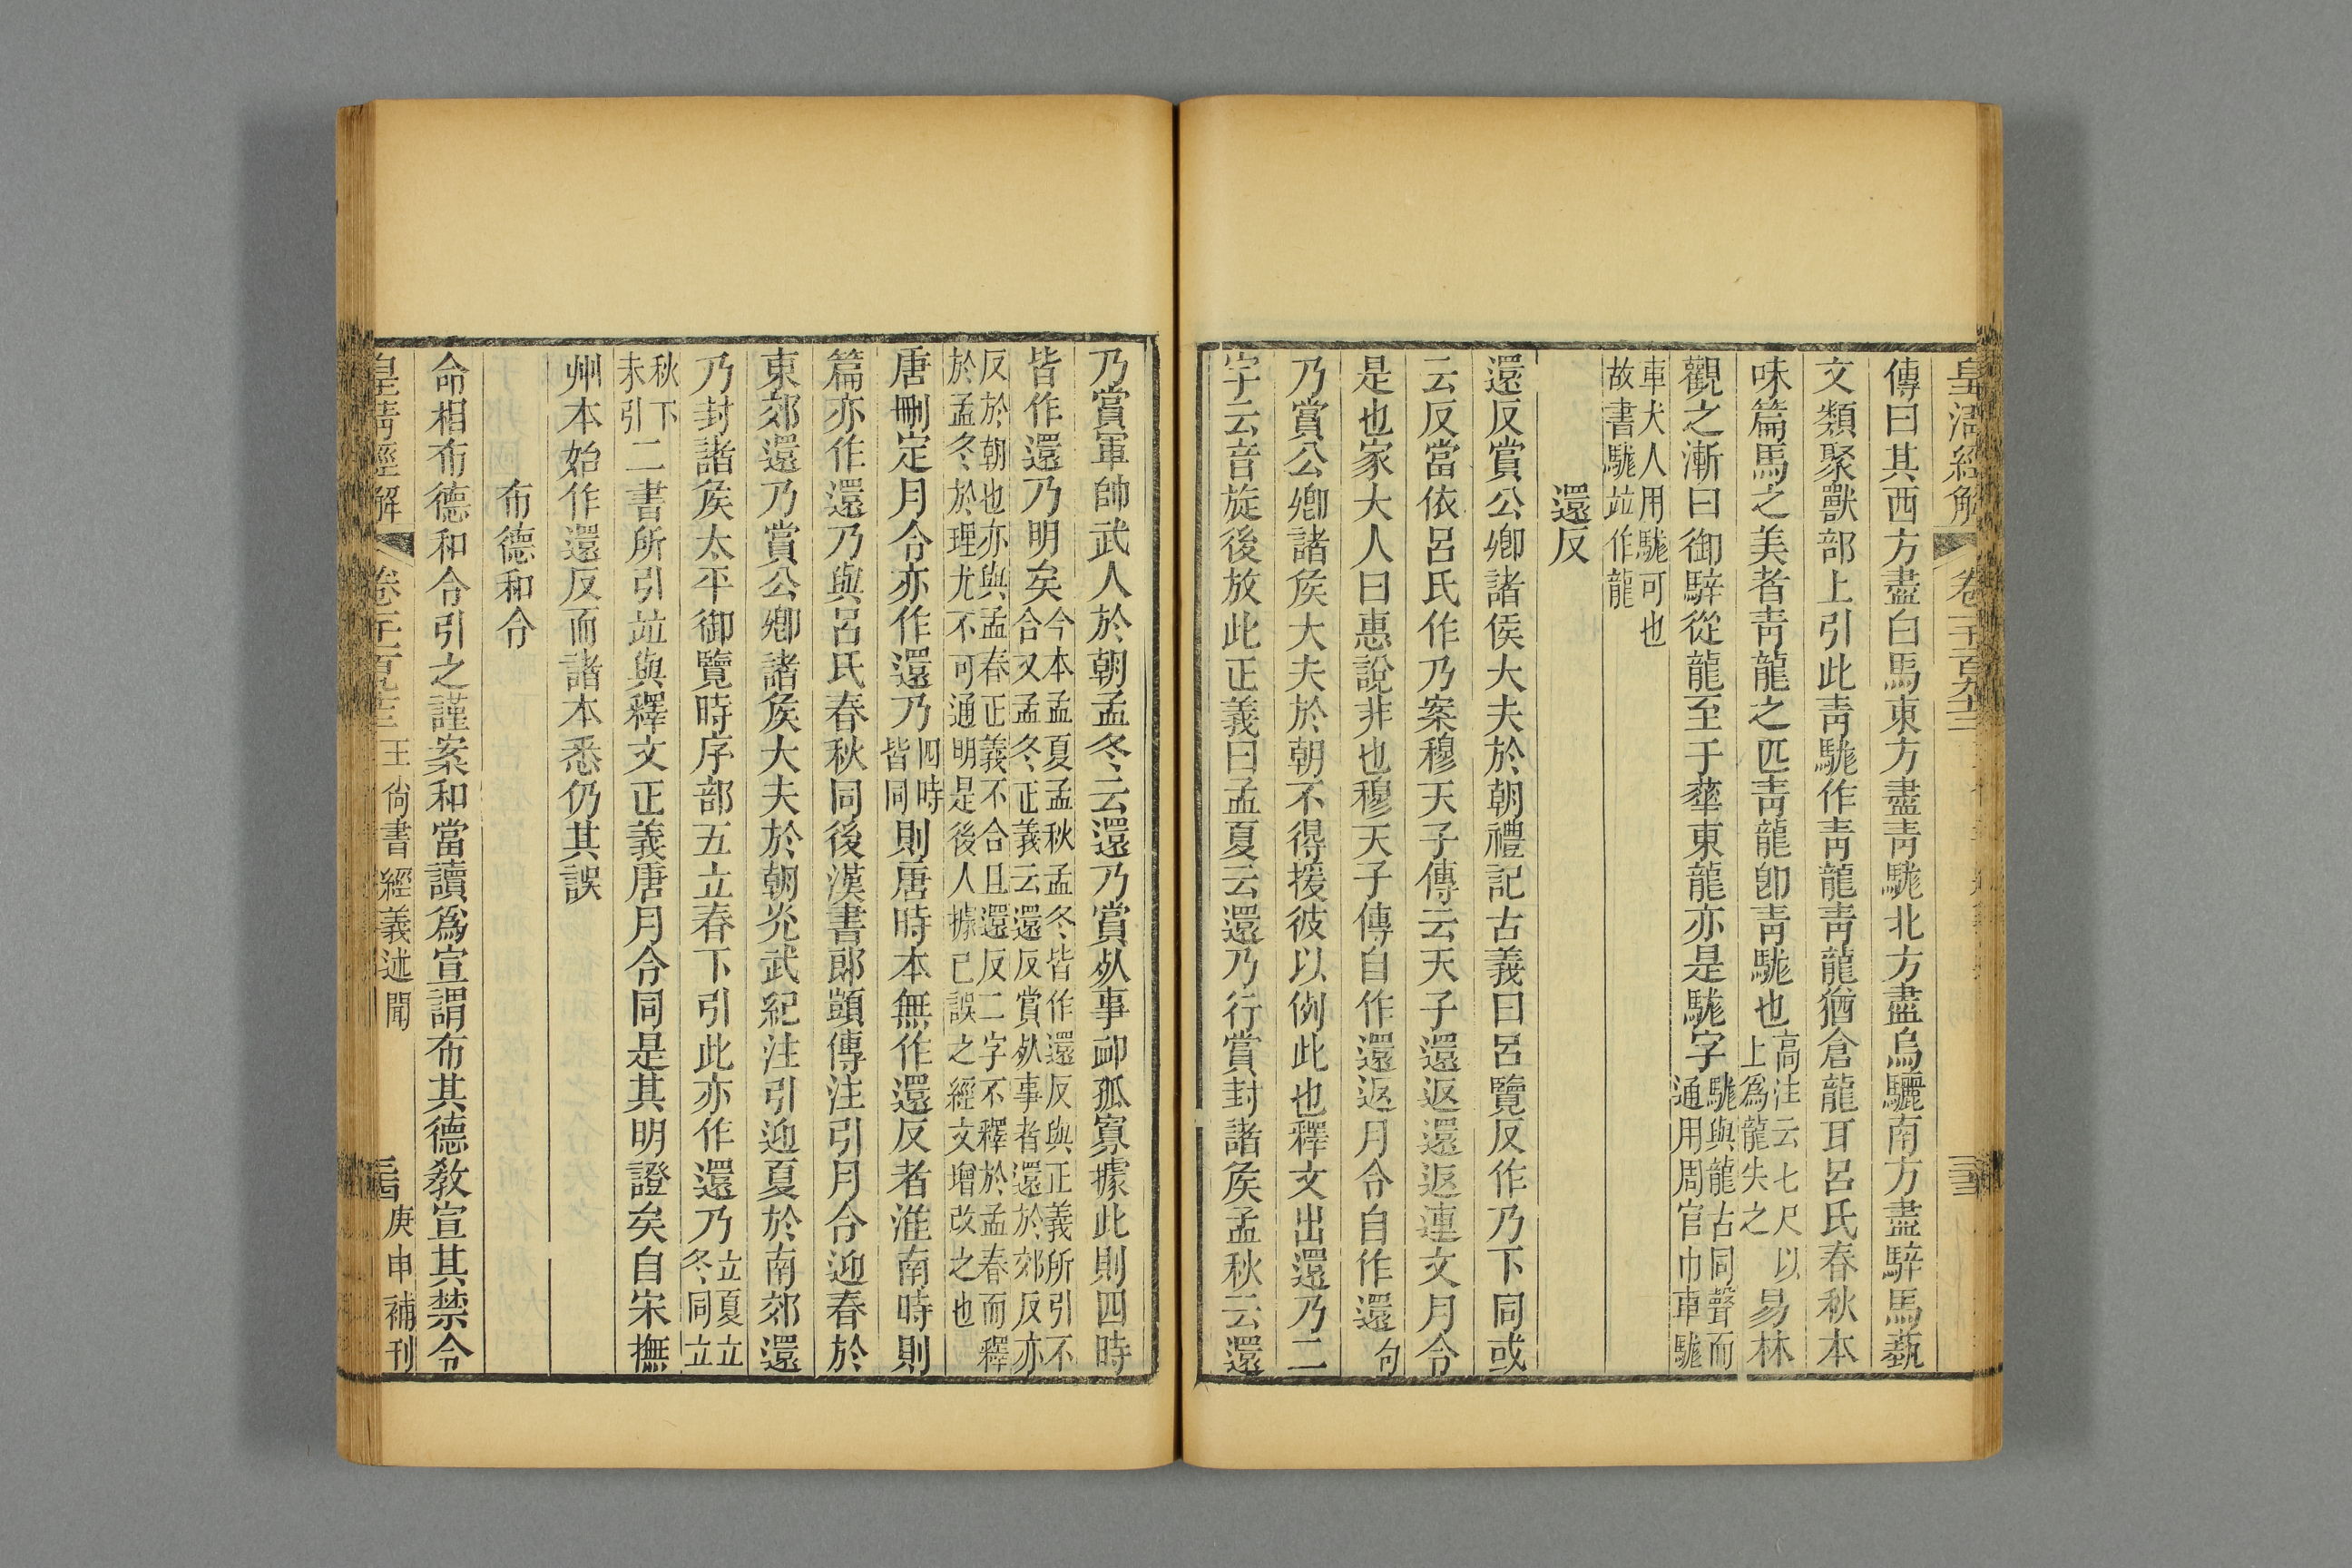 皇清經解 卷一千一百九十三
傳曰其西方盡白馬東方盡靑駹北方盡烏驪南方盡騂馬藝
文類聚獸部上引此靑駹作靑龍靑龍猶倉龍耳呂氏春秋本
味篇馬之美者靑龍之匹靑龍卽靑駹也高注云七尺以上爲龍失之易林
觀之漸曰御騂從龍至于華東龍亦是駹字駹與龍古同聲而通用周官巾車駹
車犬人用駹可也故書駹竝作龍
還反
還反賞公卿諸侯大夫於朝禮記古義曰呂覽反作乃下同或
云反當依呂氏作乃案穆天子傳云天子還返還返連文月令
是也家大人曰惠說非也穆天子傳自作還返月令自作還句
乃賞公卿諸矦大夫於朝不得援彼以例此也釋文出還乃二
字云音旋後放此正義曰孟夏云還乃行賞封諸矦孟秋云還
乃賞軍帥武人於朝孟冬云還乃賞死事卹孤寡據此則四時
皆作還乃明矣今本孟夏孟秋孟冬皆作還反與正義所引不合又孟冬正義云還反賞死事者還於郊反亦
反於朝也亦與孟春正義不合且還反二字不釋於孟春而釋於孟冬於理尤不可通明是後人據已誤之經文增改之也
唐刪定月令亦作還乃四時皆同則唐時本無作還反者淮南時則
篇亦作還乃與呂氏春秋同後漢書郞顗傳注引月令迎春於
東郊還乃賞公卿諸矦大夫於朝光武紀注引迎夏於南郊還
乃封諸矦太平御覽時序部五立春下引此亦作還乃立夏立冬同立
秋下未引二書所引竝與釋文正義唐月令同是其明證矣自宋撫
州本始作還反而諸本悉仍其誤
布德和令
命相布德和令引之謹案和當讀爲宣謂布其德敎宣其禁令
皇淸經解 卷 王尙書經義述聞 庚申補刊